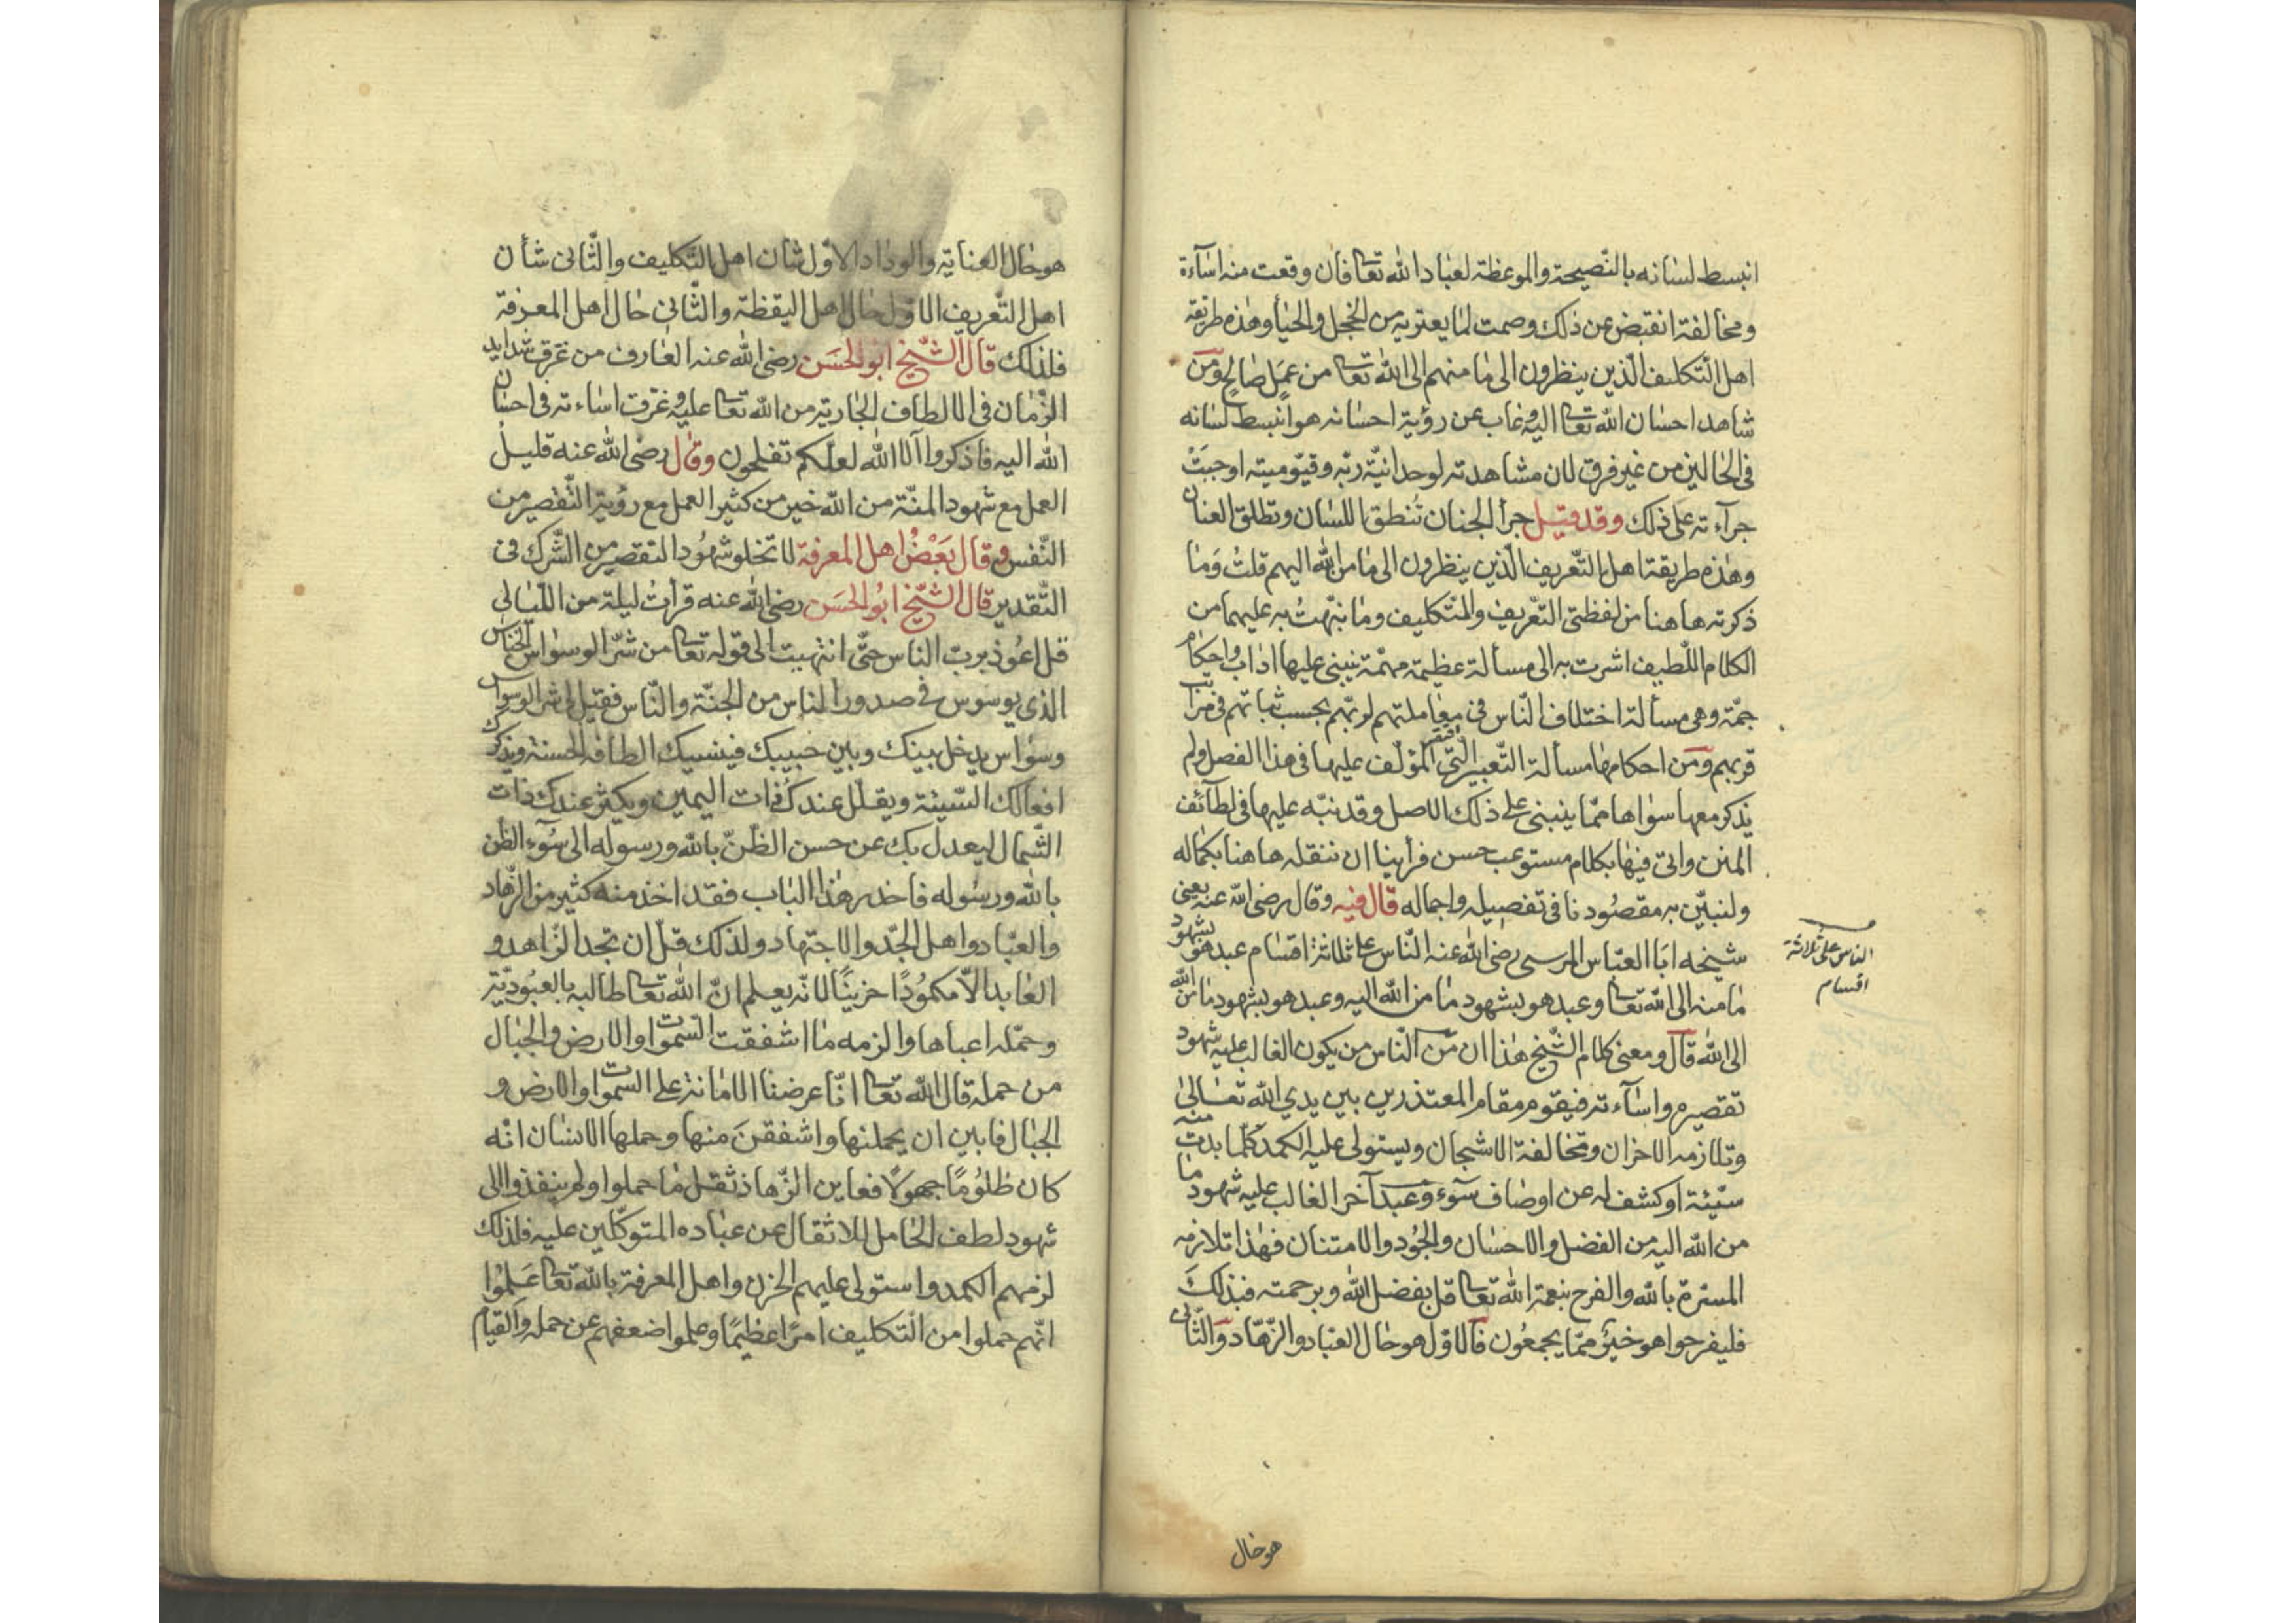 انبسط لسانه بالنّصيحة والموعظة لعباد الله تعا فان وقعت منه اسآءة
ومخالفة انقبض عن ذلك وصمت لما يعتريه من الخجل والحيأ وهذه طريقة
اهل التّكليف الّذين ينظرون الى ما منهم الى الله تعا من عمل صالح ومن
شاهد احسان الله تعا اليه وغاب عن رؤية احسانه هو انبسط لسانه
فى الحالين من غير فرق لان مشاهدته لوحدانيّة ربّه وقيّوميته اوجبت
جرآءته على ذلك وقد قيل جرأ الجنان تُنطق اللسان وتطلق العنان
وهذه طريقة اهل التّعريف الّذين ينظرون الى ما من الله اليهم قلتُ وما
ذكرته هاهنا من لفظتى التّعريف والتّكليف وما نبّهتُ به عليهما من
الكلام اللّطيف اشرت به الى مسألة عظيمة مهمّة ينبنى عليها اداب واحكام
جمّة وهى مسألة اختلاف النّاس فى معاملتهم لربّهم بحسب ثباتهم فى مراتب
قربهم ومن احكامها مسألة التّعبير الّتى اقتصر المؤلّف عليها فى هذا الفصل ولم
يذكر معها سواها ممّا ينبنى على ذلك الاصل وقد نبّه عليها فى لطآئف
المنن واتى فيها بكلام مستوعب حسن فرأينا ان ننقله هاهنا بكماله
ولنبيّن به مقصودنا فى تفصيله واجماله قال فيه وقال رضى الله عنه يعنى
شيخه ابا العبّاس المرسى رضى الله عنه النّاس على ثلاثة اقسام عبد هو بشهود
ما منه الى الله تعا وعبد هو بشهود ما من الله اليه وعبد هو بشهود ما من الله
الى الله قال ومعنى كلام الشّيخ هذا ان من النّاس من يكون الغالب عليه شهود
تقصيره واسآءته فيقوم مقام المعتذرين بين يدي الله تعالى
وتلازمه الاحزان ومخالفة الاشجان ويستولى عليه الكمد كلّما بدت منه
سيّئة او كشف له عن اوصاف سوء وعبد آخر الغالب عليه شهود ما
من الله اليه من الفضل والاحسان والجُود والامتنان فهذا تلازمه
المسرّة بالله والفرح بنعمة الله تعا قل بفضل الله وبرحمته فبذلك
فليفرحوا هو خيرٌ ممّا يجمعُون فالاوّل هو حال العبّاد والزّهّاد والثّانى
النّاس على ثلاثة
اقسام
هو حال
هو حال العناية والوداد الاوّل شان اهل التّكليف والثّانى شأن
اهل التّعريف الاوّل حال اهل اليقظة والثّانى حال اهل المعرفة
فلذلك قال الشّيخ ابو الحسَن رضى الله عنه العارف من غرق شدايد
الزّمان فى الالطاف الجارية من الله تعا عليه وغرقت اساءته فى احسان
الله اليه فاذكروا آلآ الله لعلّكم تفلحون وقال رضى الله عنه قليل
العمل مع شهود المنّة من الله خير من كثير العمل مع رؤية التّقصير من
النّفس وقال بَعْضُ اهل المعرفة لا تخلو شهُود التقصير من الشّرك فى
التّقدير قال الشّيخ ابُو الحسَن رضى الله عنه قرأتُ ليلة من اللّيالى
قل اعُوذ بربّ الناس حتّى انتهيت الى قوله تعا من شرّ الوسواس الخنّاس
الذى يوسوس فى صدور الناس من الجنّة والنّاس فقيل لى شر الوسواس
وسواس يدخل بينك وبين حبيبك فينسيك الطافه الحسنة ويذكرك
افعالك السّيّئة ويقلّل عندك ذات اليمين ويكثر عندك ذات
الشّمال ليعدل بك عن حسن الظّنّ بالله ورسوله الى سُوء الظّن
بالله ورسُوله فاحذر هذا الباب فقد اخذ منه كثير من الزّهاد
والعبّاد واهل الجدّ والاجتهاد ولذلك قلّ ان تجد الزّاهد و
العابد الّا مكمُودًا حزينًا لانّه يعلم انّ الله تعا طالبه بالعبُوديّة
وحمّله اعباها والزمه ما اشفقت السّموات والارض والجبال
من حمله قال الله تعا انّا عرضنا الامانة على السموات والارض و
الجبال فابين ان يحملنها واشفقنَ منها وحملها الانسان انّه
كان ظلُومًا جهولًا فعاين الزّهاد ثقل ما حملوا ولم ينفذوا الى
شهود لطف الحامل للاثقال عن عباده المتوكّلين عليه فلذلك
لزمهم الكمد واستولى عليهم الحزن واهل المعرفة بالله تعا عَلمُوا
انّهم حملوا من التّكليف امرًا عظيمًا وعلموا ضعفهم عن حمله والقيام